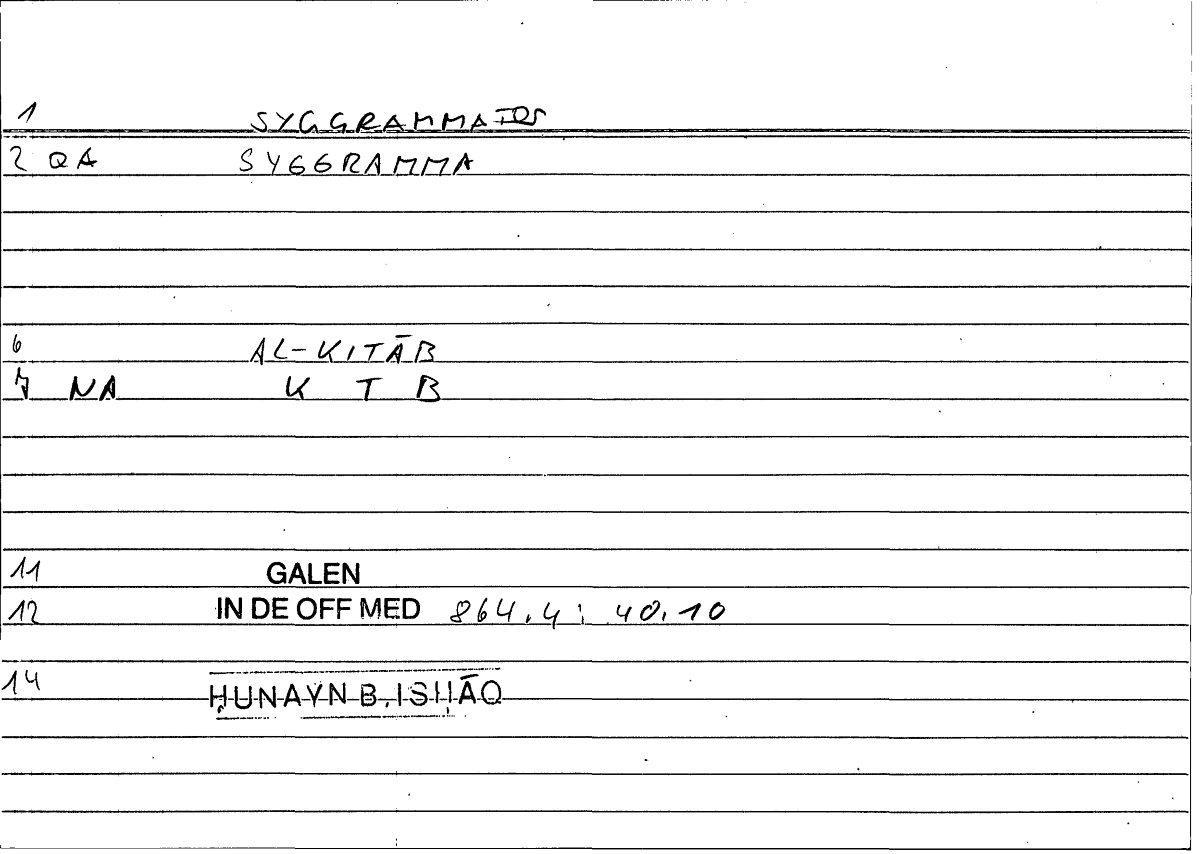 1 SYGGRAMMATOS
2 QA SYGGRAMMA
6 AL-KITĀB
7 NA K T B
11 GALEN
12 IN DE OFF MED 864.4; 40.10
14 ḤUNAYN B. ISḤĀQ